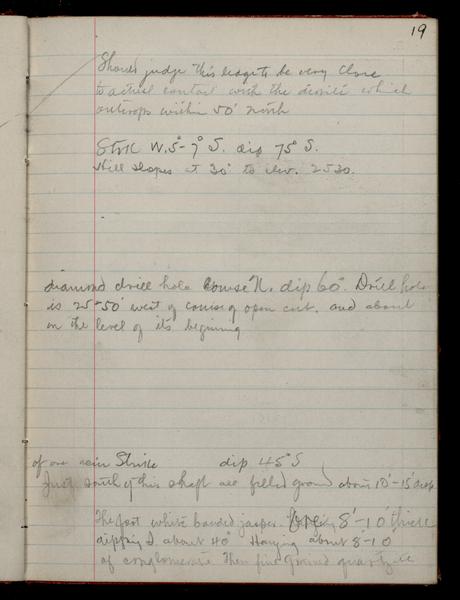 19
Should judge this ledge to be very close
to actual contact with the diorite which
outcrops within 50' north
Strike W. 5°-7° S. dip 75° S.
Hill slopes at 30° to elev. 2530.
diamond drill hole Course N. dip 60°. Drill hole
is 25-50' west of course of open cut. and about
on the level of its begining
of ore vein Strike dip 45° S
Just south of this shaft are filled ground about 10'-15' deep
The foot white banded jasper. 8'-10' thick
dipping S. about 40° Hanging about 8-10
of conglomerate then fine grained quartzite